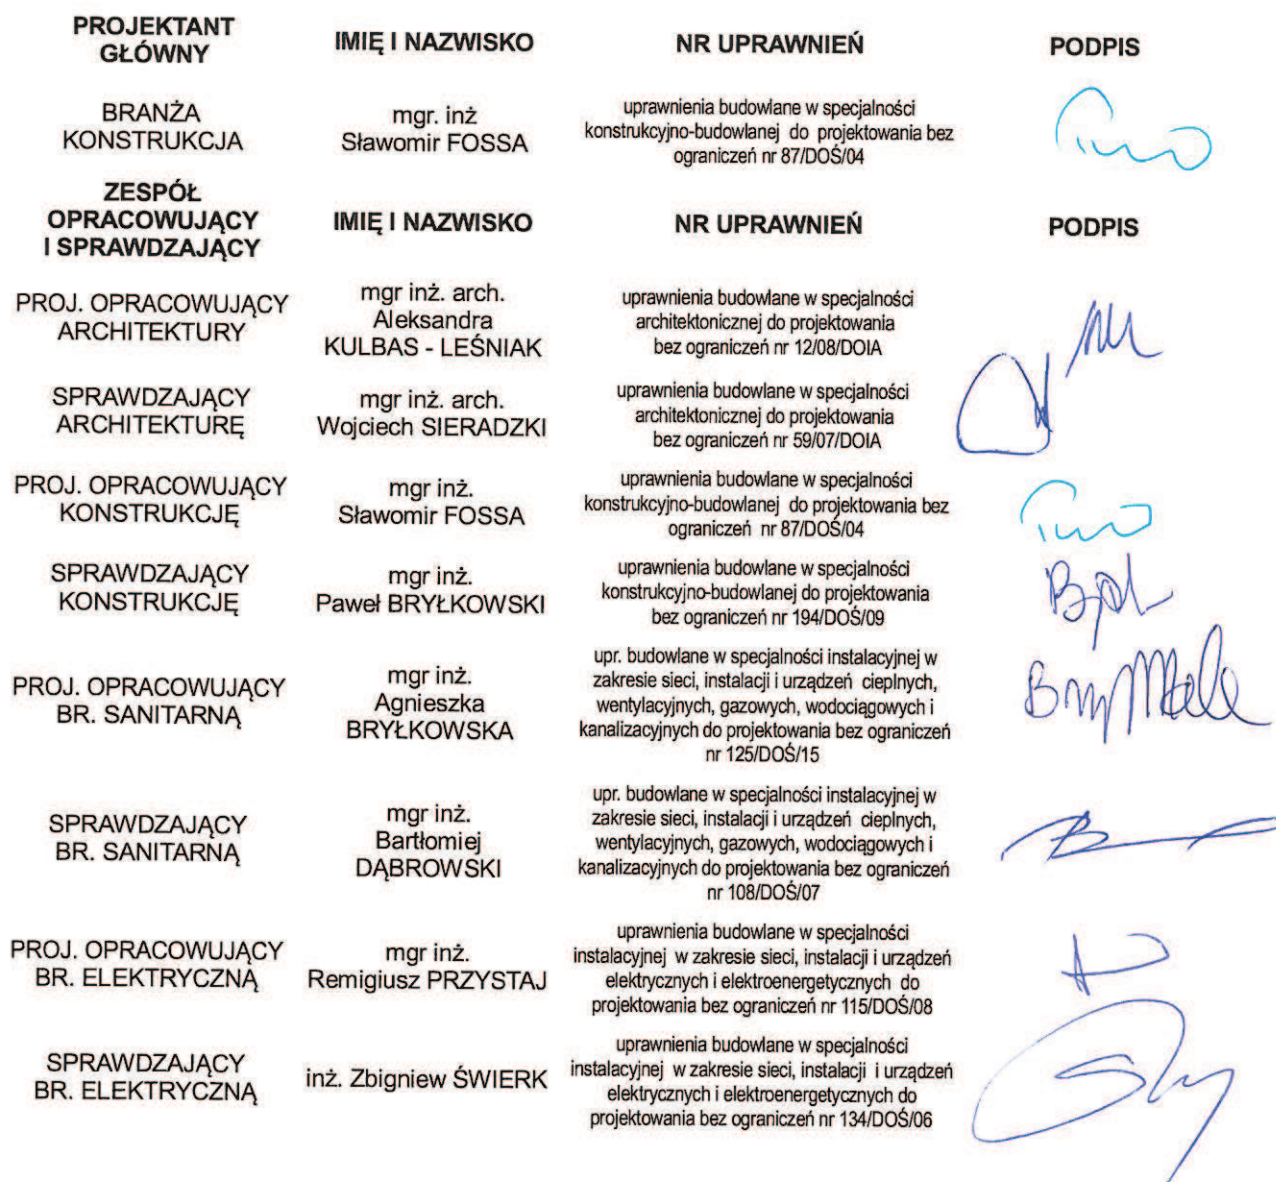 PROJEKTANT
GŁÓWNY
IMIĘ I NAZWISKO
NR UPRAWNIEŃ
PODPIS
BRANŻA
KONSTRUKCJA
mgr. inż
Sławomir FOSSA
uprawnienia budowlane w specjalności
konstrukcyjno-budowlanej do projektowania bez
ograniczeń nr 87/DOŚ/04
ZESPÓŁ
OPRACOWUJĄCY
I SPRAWDZAJĄCY
IMIĘ I NAZWISKO
NR UPRAWNIEŃ
PODPIS
PROJ. OPRACOWUJĄCY
ARCHITEKTURY
mgr inż. arch.
Aleksandra
KULBAS - LEŚNIAK
uprawnienia budowlane w specjalności
architektonicznej do projektowania
bez ograniczeń nr 12/08/DOIA
SPRAWDZAJĄCY
ARCHITEKTURĘ
mgr inż. arch.
Wojciech SIERADZKI
uprawnienia budowlane w specjalności
architektonicznej do projektowania
bez ograniczeń nr 59/07/DOIA
PROJ. OPRACOWUJĄCY
KONSTRUKCJĘ
mgr inż.
Sławomir FOSSA
uprawnienia budowlane w specjalności
konstrukcyjno-budowlanej do projektowania bez
ograniczeń nr 87/DOŚ/04
SPRAWDZAJĄCY
KONSTRUKCJĘ
mgr inż.
Paweł BRYŁKOWSKI
uprawnienia budowlane w specjalności
konstrukcyjno-budowlanej do projektowania
bez ograniczeń nr 194/DOŚ/09
PROJ. OPRACOWUJĄCY
BR. SANITARNĄ
mgr inż.
Agnieszka
BRYŁKOWSKA
upr. budowlane w specjalności instalacyjnej w
zakresie sieci, instalacji i urządzeń cieplnych,
wentylacyjnych, gazowych, wodociągowych i
kanalizacyjnych do projektowania bez ograniczeń
nr 125/DOŚ/15
SPRAWDZAJĄCY
BR. SANITARNĄ
mgr inż.
Bartłomiej
DĄBROWSKI
upr. budowlane w specjalności instalacyjnej w
zakresie sieci, instalacji i urządzeń cieplnych,
wentylacyjnych, gazowych, wodociągowych i
kanalizacyjnych do projektowania bez ograniczeń
nr 108/DOŚ/07
PROJ. OPRACOWUJĄCY
BR. ELEKTRYCZNĄ
mgr inż.
Remigiusz PRZYSTAJ
uprawnienia budowlane w specjalności
instalacyjnej w zakresie sieci, instalacji i urządzeń
elektrycznych i elektroenergetycznych do
projektowania bez ograniczeń nr 115/DOŚ/08
SPRAWDZAJĄCY
BR. ELEKTRYCZNĄ
inż. Zbigniew ŚWIERK
uprawnienia budowlane w specjalności
instalacyjnej w zakresie sieci, instalacji i urządzeń
elektrycznych i elektroenergetycznych do
projektowania bez ograniczeń nr 134/DOŚ/06